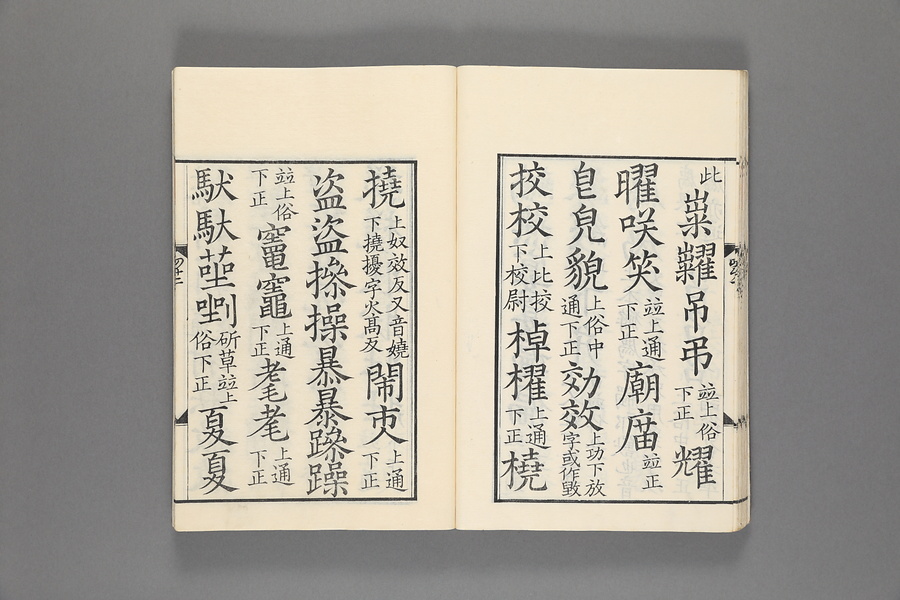 此粜糶吊弔竝上俗下正耀
曜咲笑竝上通下正廟庿竝正
皃皃貌上俗中通下正効效上功下放字或作𢽾
挍校上比挍下校尉棹櫂上通下正橈
撓上奴效反又音嬈下撓擾字火髙反閙𠆴上通下正
盗盜摻操暴暴蹨躁
竝上俗下正竃竈上通下正耄耄上通下正
馱馱菿斫草竝上俗下正夏夏